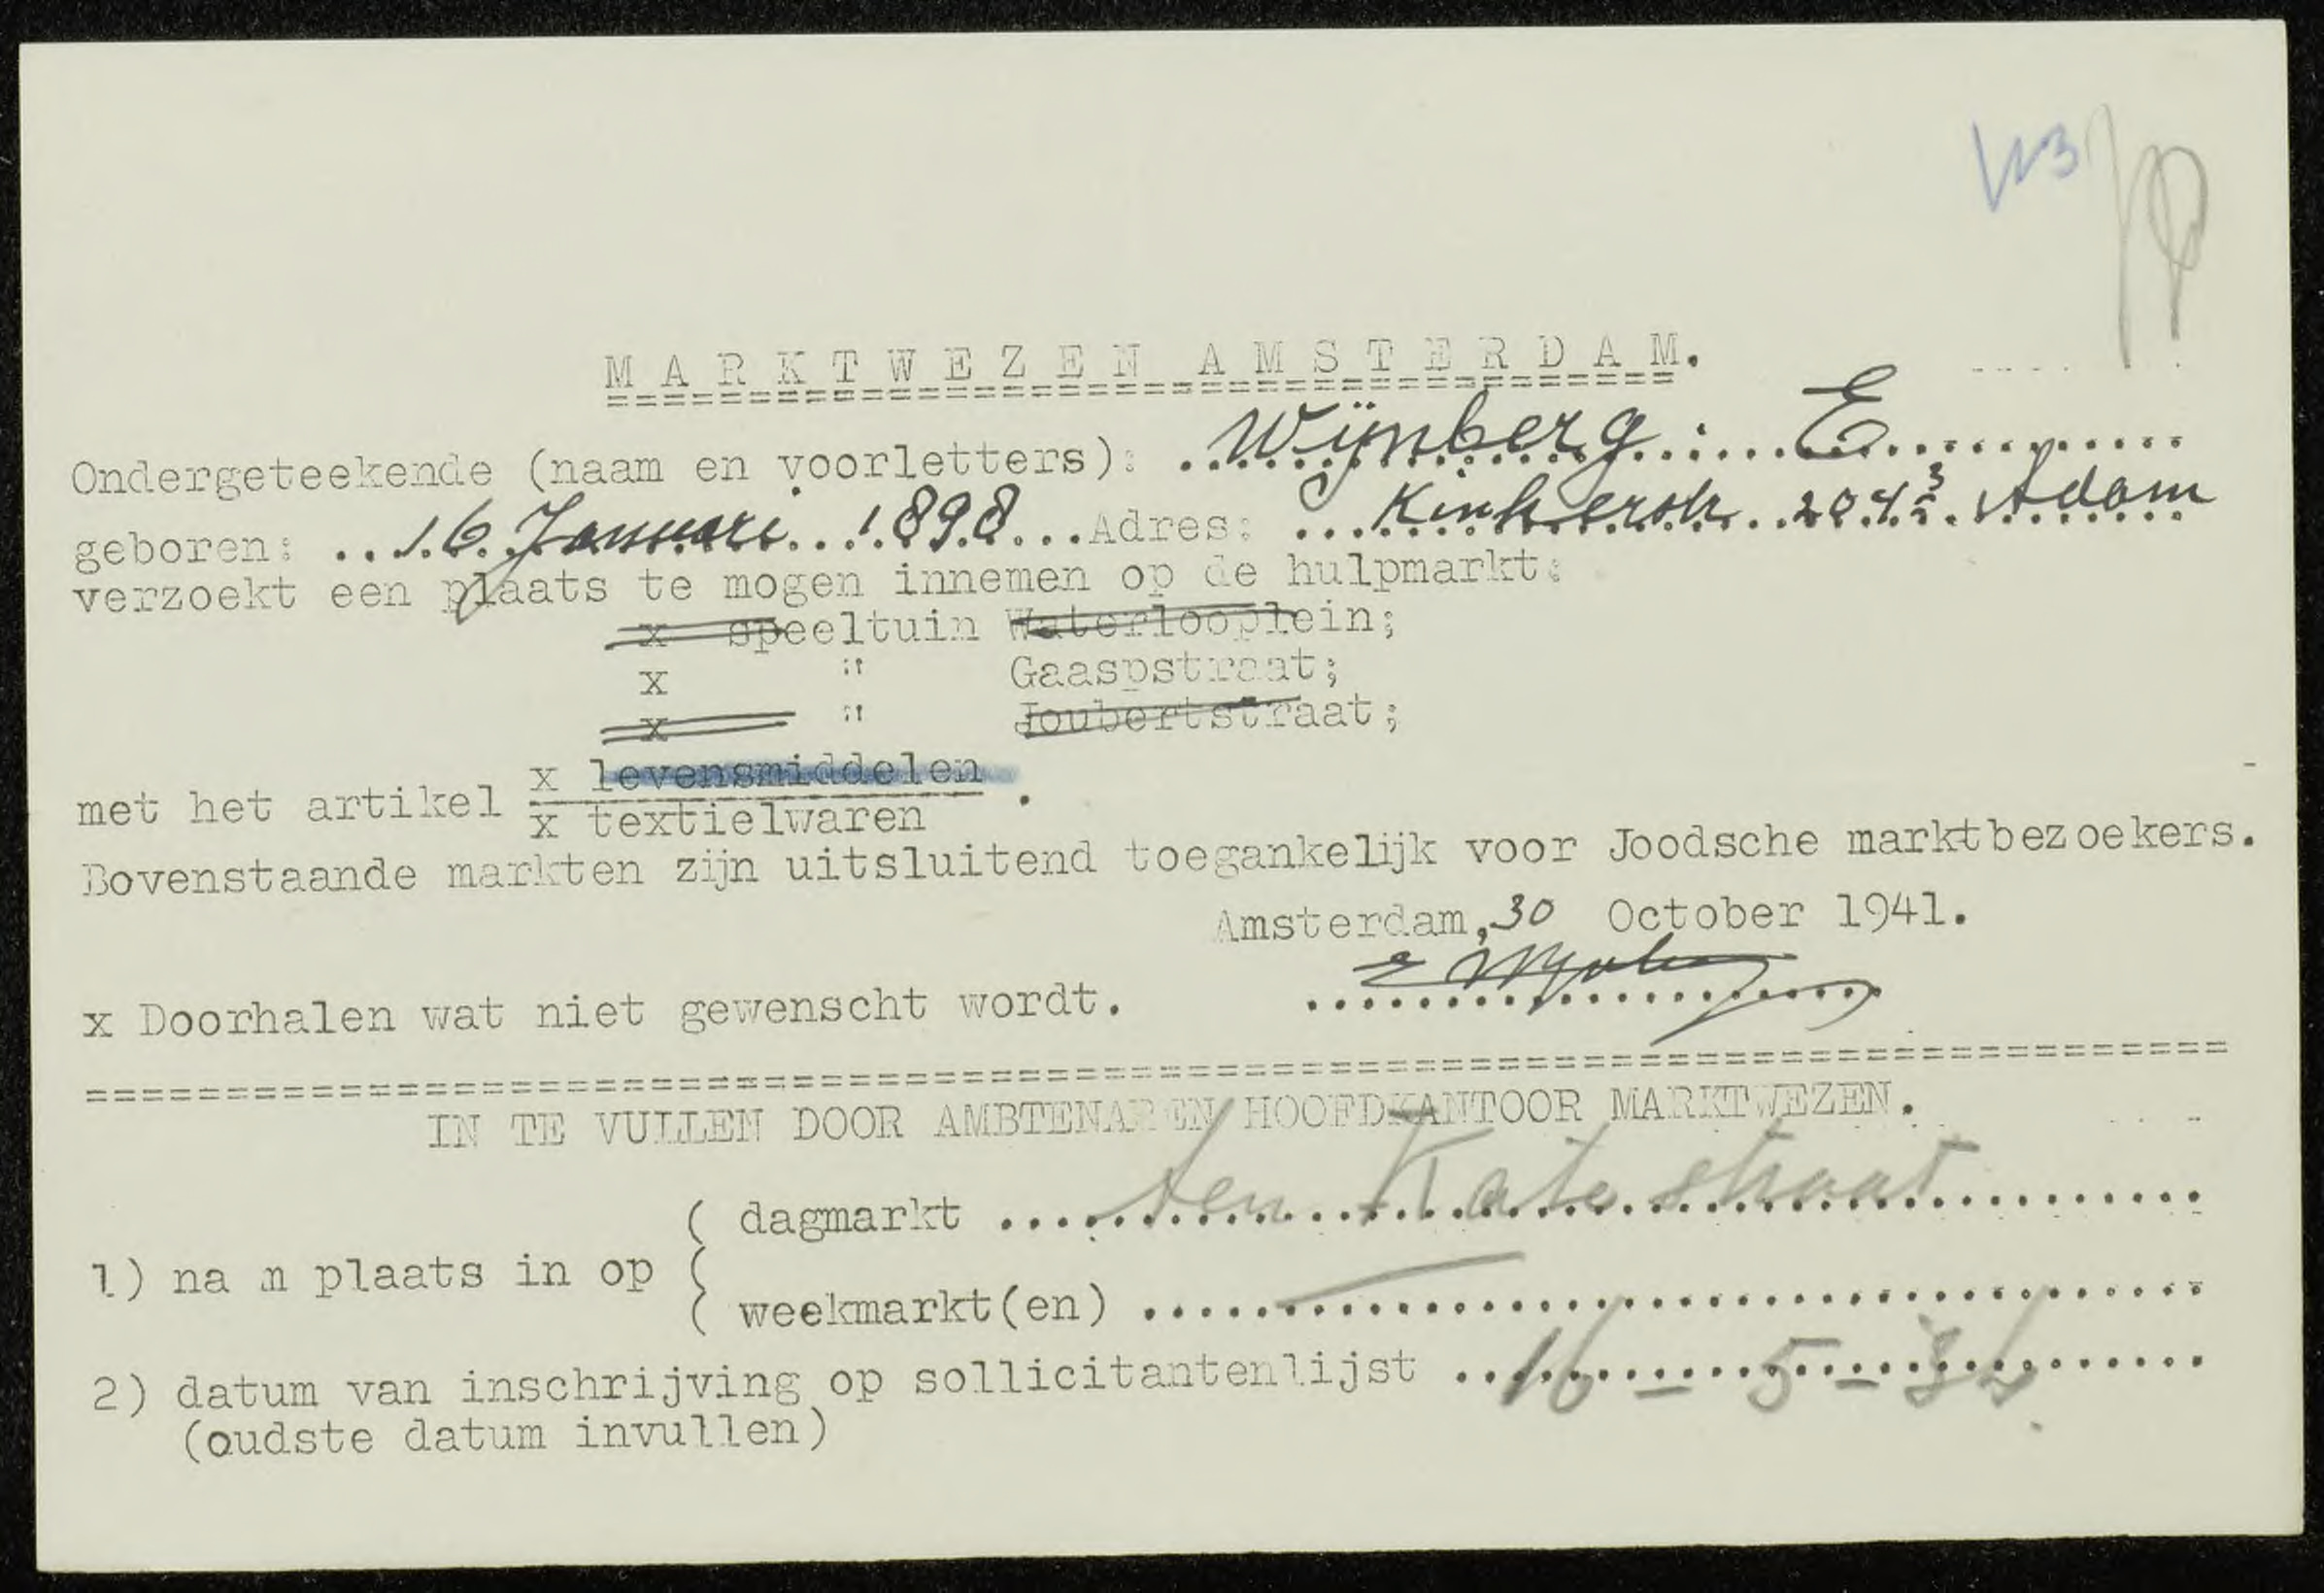 W3
MARKTWEZEN AMSTERDAM.
Ondergeteekende (naam en voorletters): Wijnberg : E
geboren: 16 Januari 1898 Adres: Kinkerstr. 204 3 Adam
verzoekt een plaats te mogen innemen op de hulpmarkt:
x speeltuin Waterlooplein;
x " Gaaspstraat;
x " Joubertstraat;
x levensmiddelen
met het artikel .
x textielwaren
Bovenstaande markten zijn uitsluitend toegankelijk voor Joodsche marktbezoekers.
Amsterdam, 30 October 1941.
x Doorhalen wat niet gewenscht wordt.
IN TE VULLEN DOOR AMBTENAREN HOOFDKANTOOR MARKTWEZEN.
( dagmarkt ten Katestraat
1) na m plaats in op (
( weekmarkt(en) —
2) datum van inschrijving op sollicitantenlijst 16 - 5 - 34
(oudste datum invullen)